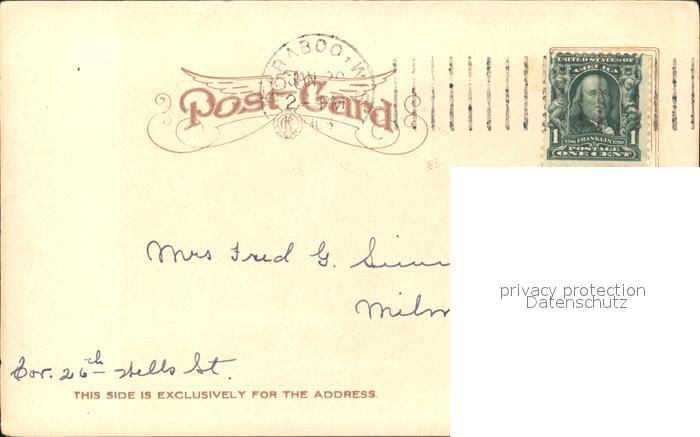 RABOO, W
2 - PM
Post Card
UNITED STATES OF
AMERICA
1 1
FRANKLIN
POSTAGE
ONE CENT
Mrs Fred G.
privacy protection
Datenschutz
Cor. 26th Wells St.
THIS SIDE IS EXCLUSIVELY FOR THE ADDRESS.